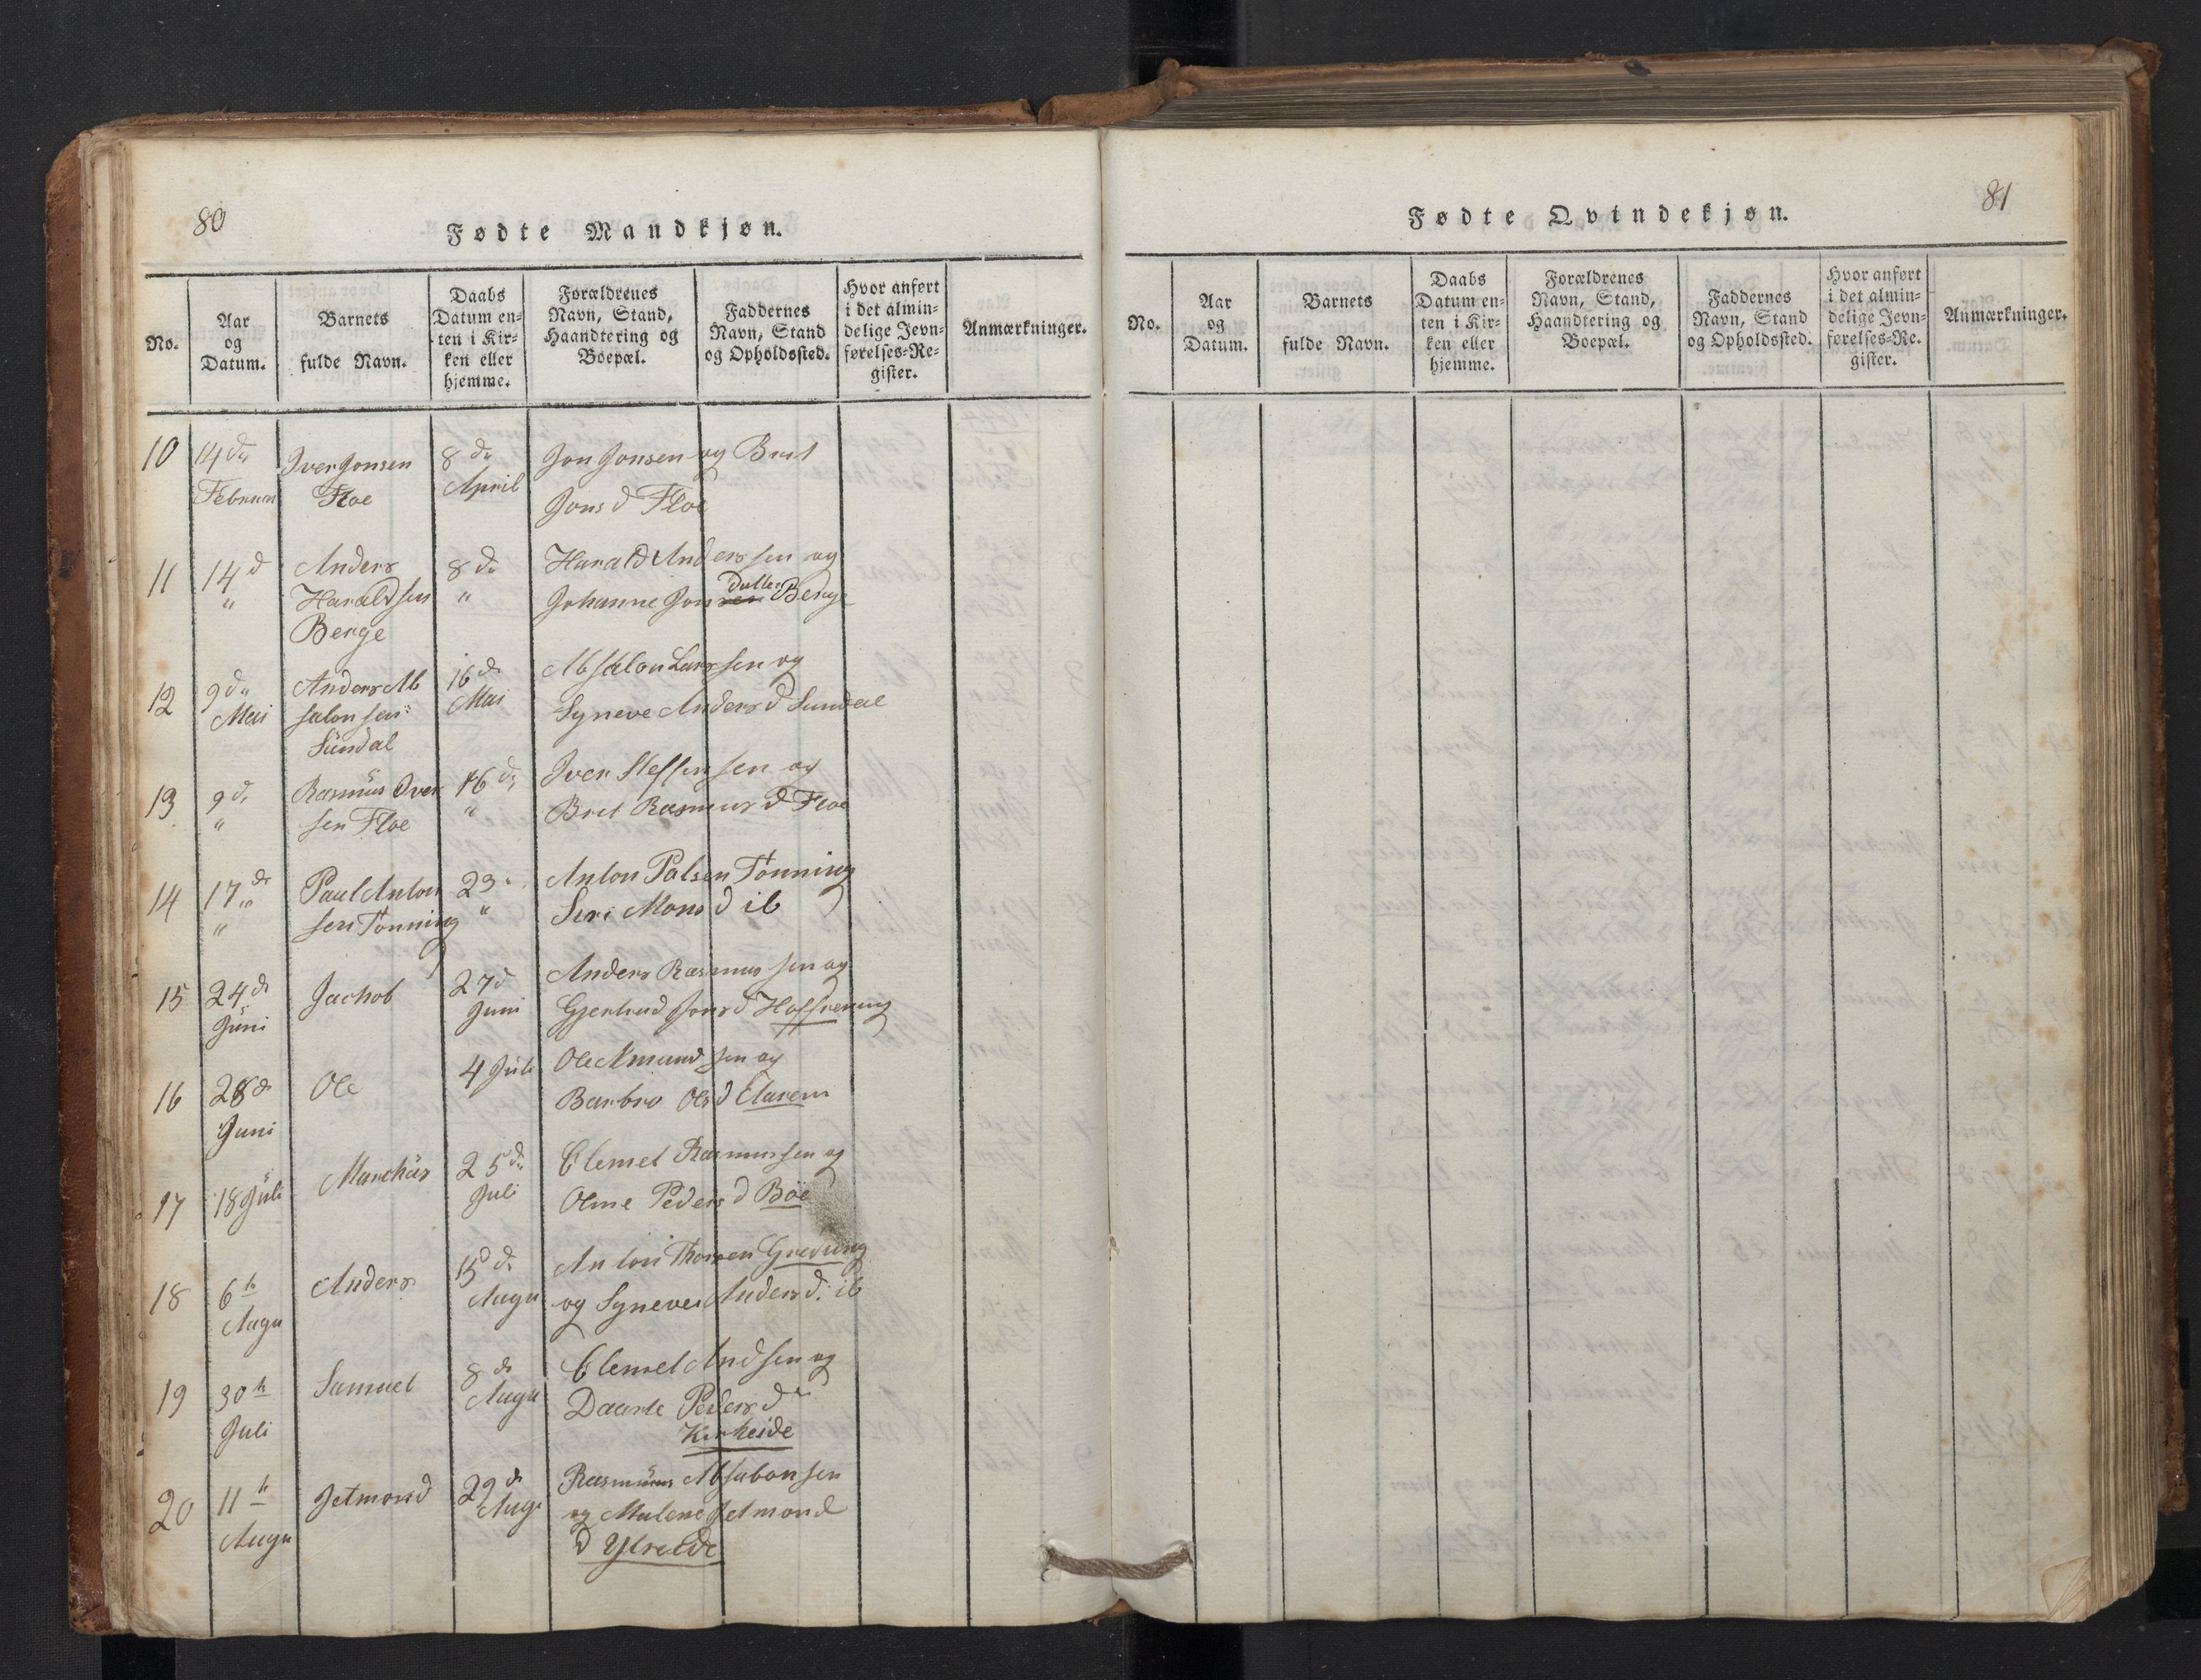 80
Fødte Mandkjøn.
No.
Aar og Datum.
Barnets fulde Navn.
Daabs Datum enten i Kirken eller hjemme.
Forældrenes Navn, Stand, Haandtering og Boepæl.
Faddernes Navn, Stand og Opholdssted.
Hvor anført i det almindelige Jevnførelses-Register.
Anmærkninger.
10 14 d Februar Iver Jonsen Floe 8 d April Jon Jonsen og Brit
Jons d Floe
11 14 d " Anders Haraldsen Berge 8 d " Harald Anderssen og
Johanne Jonsen datter Berge
12 9 d Mai Anders Absalonsen Sündal 16 d Mai Absalon Larssen og
Syneve Anders d Sundal
13 9 d " Rasmüs Iversen Floe 16 d " Iver Steffenssen og
Brit Rasmus d Floe
14 17 d " Paul Antonsen Tonning 23 " Anton Palsen Tonning
Siri Mons d ib
15 24 d Jüni Jachob 27 d Juni Anders Rasmussen og
Gjertrud Jons d Hoffrenning
16 28 d Juni Ole 4 Juli Ole Amundsen og
Barbro Ols d
17 18 Jüli Marchüs 25 d Juli Clemet Rasmussen og
Oline Peders d Böe
18 6 h Augu Anders 15 d Augu Anton Thorsen Gredung
og Syneve Anders d: ib
19 30 h Juli Samuel 8 d Augu Clemet Andsen og
Daarte Peders d
Kirkeide
20 11 h Augu Jetmond 29 d Aug Rasmüs Absalonsen
og Malene Jetmond
d Ytreide
81
Fødte Qvindekjøn.
No.
Aar og Datum.
Barnets fulde Navn.
Daabs Datum enten i Kirken eller hjemme.
Forældrenes Navn, Stand, Haandtering og Boepæl.
Faddernes Navn, Stand og Opholdssted.
Hvor anført i det almindelige Jevnførelses-Register.
Anmærkninger.